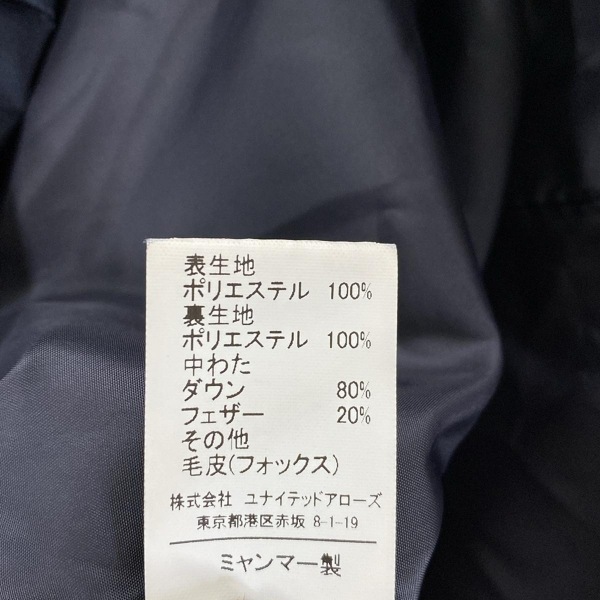 表生地
ポリエステル 100%
裏生地
ポリエステル 100%
中わた
ダウン 80%
フェザー 20%
その他
毛皮(フォックス)
株式会社 ユナイテッドアローズ
東京都港区赤坂 8-1-19
ミャンマー製